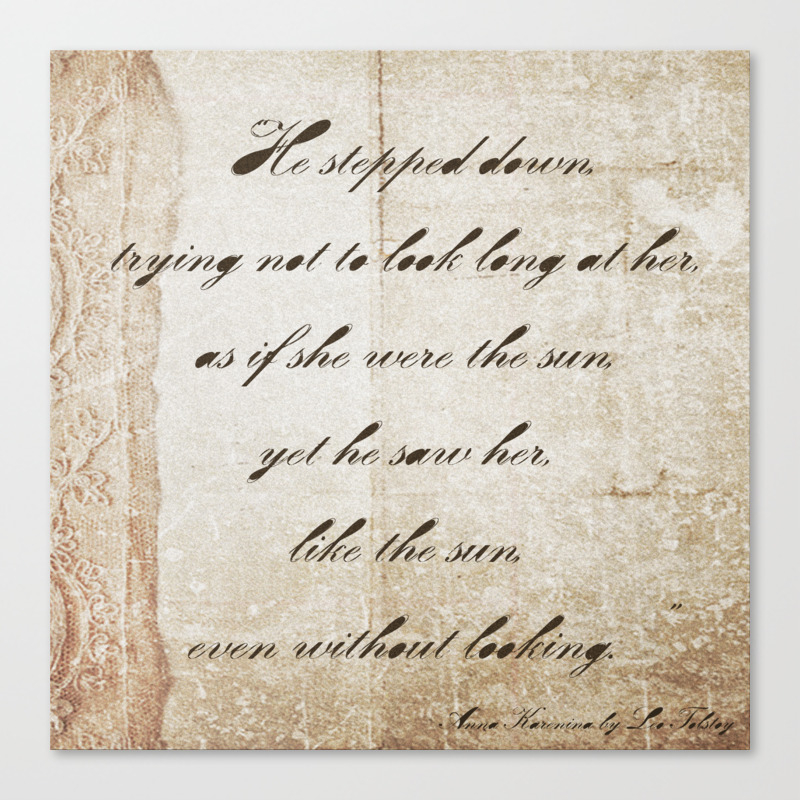 He stepped down,
trying not to look long at her,
as if she were the sun,
yet he saw her,
like the sun,
even without looking.
"
Anna Karenina by Leo Tolstoy